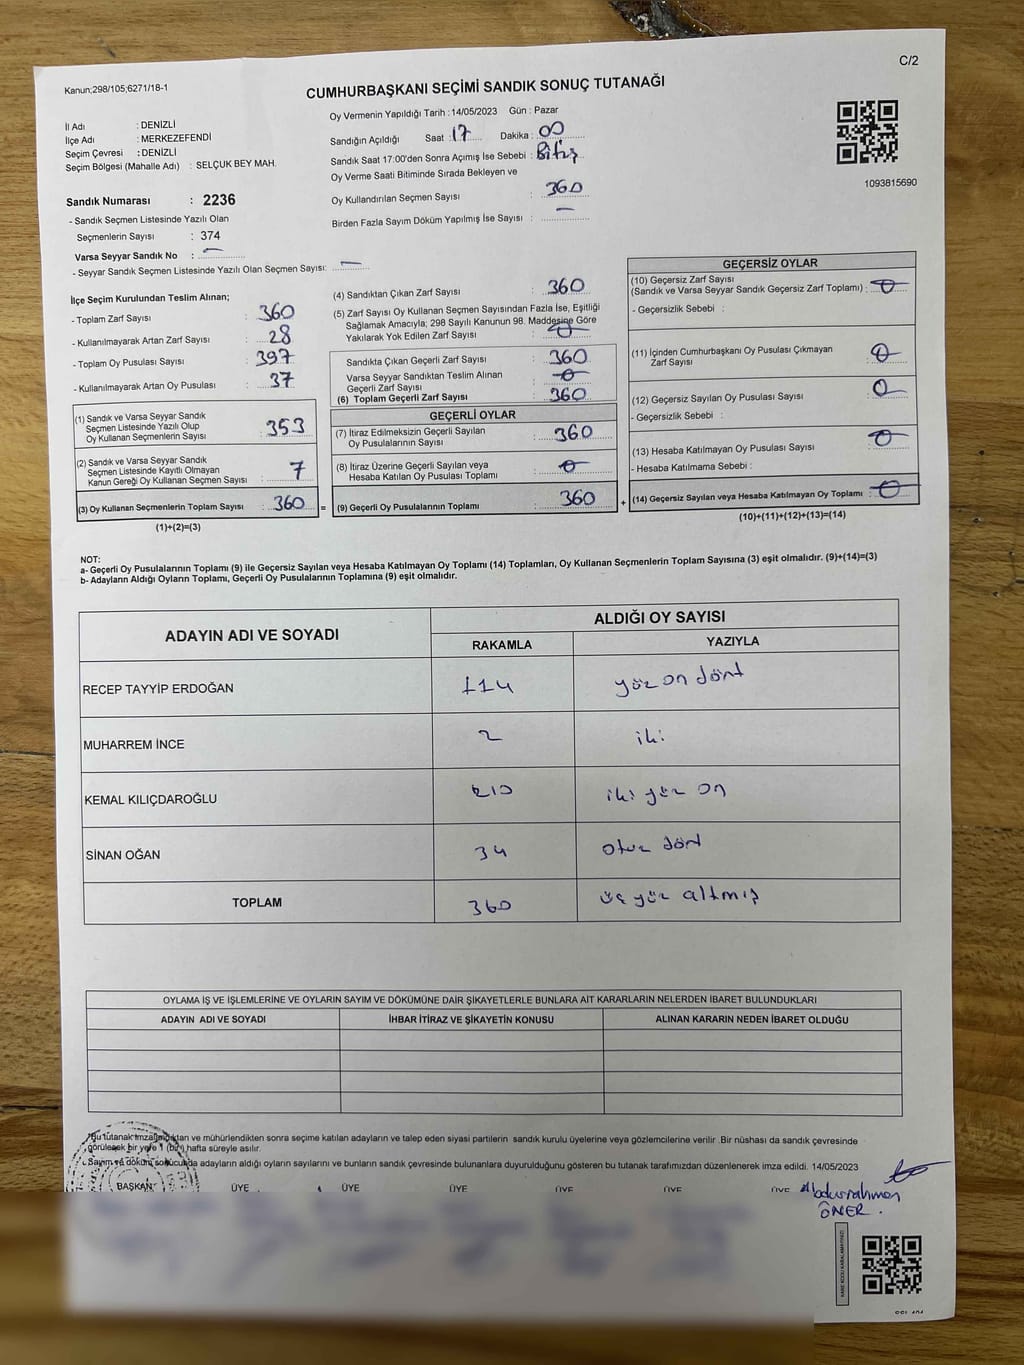 C/2
Kanun;298/105;6271/18-1
CUMHURBAŞKANI SEÇİMİ SANDIK SONUÇ TUTANAĞI
İl Adı : DENİZLİ
İlçe Adı : MERKEZEFENDİ
Seçim Çevresi : DENİZLİ
Seçim Bölgesi (Mahalle Adı) : SELÇUK BEY MAH.
Sandık Numarası : 2236
- Sandık Seçmen Listesinde Yazılı Olan
Seçmenlerin Sayısı : 374
Varsa Seyyar Sandık No : —
- Seyyar Sandık Seçmen Listesinde Yazılı Olan Seçmen Sayısı: —
Oy Vermenin Yapıldığı Tarih : 14/05/2023 Gün : Pazar
Sandığın Açıldığı Saat : 17 Dakika : 00
Sandık Saat 17:00'den Sonra Açımış İse Sebebi : Bitiş
Oy Verme Saati Bitiminde Sırada Bekleyen ve
Oy Kullandırılan Seçmen Sayısı : 360
Birden Fazla Sayım Döküm Yapılmış İse Sayısı : —
1093815690
İlçe Seçim Kurulundan Teslim Alınan;
- Toplam Zarf Sayısı : 360
- Kullanılmayarak Artan Zarf Sayısı : 28
- Toplam Oy Pusulası Sayısı : 397
- Kullanılmayarak Artan Oy Pusulası : 37
(1) Sandık ve Varsa Seyyar Sandık
Seçmen Listesinde Yazılı Olup
Oy Kullanan Seçmenlerin Sayısı : 353
(2) Sandık ve Varsa Seyyar Sandık
Seçmen Listesinde Kayıtlı Olmayan
Kanun Gereği Oy Kullanan Seçmen Sayısı : 7
(3) Oy Kullanan Seçmenlerin Toplam Sayısı : 360 =
(1)+(2)=(3)
(4) Sandıktan Çıkan Zarf Sayısı : 360
(5) Zarf Sayısı Oy Kullanan Seçmen Sayısından Fazla İse, Eşitliği
Sağlamak Amacıyla; 298 Sayılı Kanunun 98. Maddesine Göre
Yakılarak Yok Edilen Zarf Sayısı : 0
Sandıkta Çıkan Geçerli Zarf Sayısı : 360
Varsa Seyyar Sandıktan Teslim Alınan
Geçerli Zarf Sayısı : 0
(6) Toplam Geçerli Zarf Sayısı : 360
GEÇERLİ OYLAR
(7) İtiraz Edilmeksizin Geçerli Sayılan
Oy Pusulalarının Sayısı : 360
(8) İtiraz Üzerine Geçerli Sayılan veya
Hesaba Katılan Oy Pusulası Toplamı : 0
(9) Geçerli Oy Pusulalarının Toplamı : 360 +
GEÇERSİZ OYLAR
(10) Geçersiz Zarf Sayısı
(Sandık ve Varsa Seyyar Sandık Geçersiz Zarf Toplamı) : 0
- Geçersizlik Sebebi :
(11) İçinden Cumhurbaşkanı Oy Pusulası Çıkmayan
Zarf Sayısı : 0
(12) Geçersiz Sayılan Oy Pusulası Sayısı : 0
- Geçersizlik Sebebi :
(13) Hesaba Katılmayan Oy Pusulası Sayısı : 0
- Hesaba Katılmama Sebebi :
(14) Geçersiz Sayılan veya Hesaba Katılmayan Oy Toplamı : 0
(10)+(11)+(12)+(13)=(14)
NOT:
a- Geçerli Oy Pusulalarının Toplamı (9) ile Geçersiz Sayılan veya Hesaba Katılmayan Oy Toplamı (14) Toplamları, Oy Kullanan Seçmenlerin Toplam Sayısına (3) eşit olmalıdır. (9)+(14)=(3)
b- Adayların Aldığı Oyların Toplamı, Geçerli Oy Pusulalarının Toplamına (9) eşit olmalıdır.
ADAYIN ADI VE SOYADI ALDIĞI OY SAYISI
RAKAMLA YAZIYLA
RECEP TAYYİP ERDOĞAN 114 yüz on dört
MUHARREM İNCE 2 iki
KEMAL KILIÇDAROĞLU 210 iki yüz on
SİNAN OĞAN 34 otuz dört
TOPLAM 360 üç yüz altmış
OYLAMA İŞ VE İŞLEMLERİNE VE OYLARIN SAYIM VE DÖKÜMÜNE DAİR ŞİKAYETLERLE BUNLARA AİT KARARLARIN NELERDEN İBARET BULUNDUKLARI
ADAYIN ADI VE SOYADI İHBAR İTİRAZ VE ŞİKAYETİN KONUSU ALINAN KARARIN NEDEN İBARET OLDUĞU
*Bu tutanak imzalandıktan ve mühürlendikten sonra seçime katılan adayların ve talep eden siyasi partilerin sandık kurulu üyelerine veya gözlemcilerine verilir .Bir nüshası da sandık çevresinde
görülecek bir yere 1 (bir) hafta süreyle asılır.
Sayım ve döküm sonucunda adayların aldığı oyların sayılarını ve bunların sandık çevresinde bulunanlara duyurulduğunu gösteren bu tutanak tarafımızdan düzenlenerek imza edildi. 14/05/2023
BAŞKAN ÜYE ÜYE ÜYE ÜYE ÜYE ÜYE Abdurrahman
ÖNER.